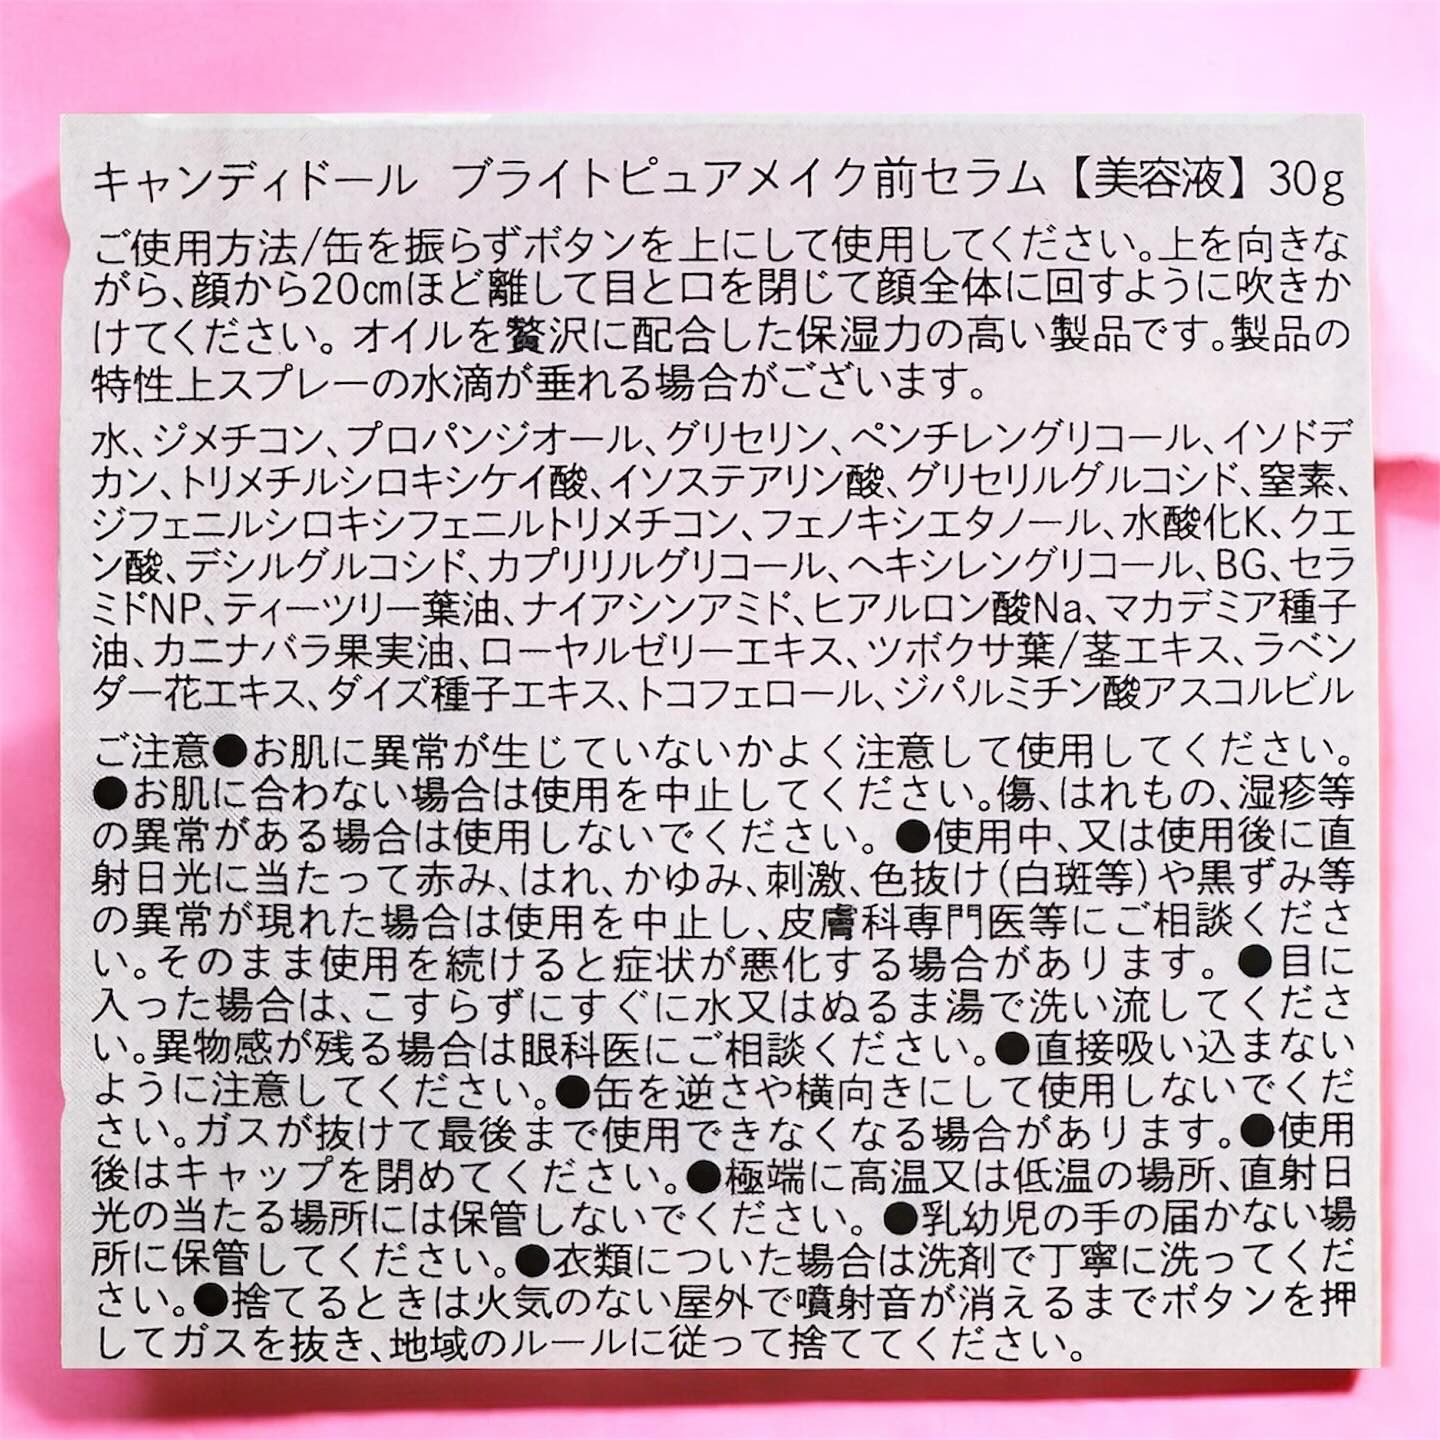 キャンディドール ブライトピュアメイク前セラム【美容液】30g
ご使用方法/缶を振らずボタンを上にして使用してください。上を向きな
がら、顔から20㎝ほど離して目と口を閉じて顔全体に回すように吹きか
けてください。オイルを贅沢に配合した保湿力の高い製品です。製品の
特性上スプレーの水滴が垂れる場合がございます。
水、ジメチコン、プロパンジオール、グリセリン、ペンチレングリコール、イソドデ
カン、トリメチルシロキシケイ酸、イソステアリン酸、グリセリルグルコシド、窒素、
ジフェニルシロキシフェニルトリメチコン、フェノキシエタノール、水酸化K、クエ
ン酸、デシルグルコシド、カプリリルグリコール、ヘキシレングリコール、BG、セラ
ミドNP、ティーツリー葉油、ナイアシンアミド、ヒアルロン酸Na、マカデミア種子
油、カニナバラ果実油、ローヤルゼリーエキス、ツボクサ葉/茎エキス、ラベン
ダー花エキス、ダイズ種子エキス、トコフェロール、ジパルミチン酸アスコルビル
ご注意●お肌に異常が生じていないかよく注意して使用してください。
●お肌に合わない場合は使用を中止してください。傷、はれもの、湿疹等
の異常がある場合は使用しないでください。●使用中、又は使用後に直
射日光に当たって赤み、はれ、かゆみ、刺激、色抜け(白斑等)や黒ずみ等
の異常が現れた場合は使用を中止し、皮膚科専門医等にご相談くださ
い。そのまま使用を続けると症状が悪化する場合があります。●目に
入った場合は、こすらずにすぐに水又はぬるま湯で洗い流してくださ
い。異物感が残る場合は眼科医にご相談ください。●直接吸い込まない
ように注意してください。●缶を逆さや横向きにして使用しないでくだ
さい。ガスが抜けて最後まで使用できなくなる場合があります。●使用
後はキャップを閉めてください。●極端に高温又は低温の場所、直射日
光の当たる場所には保管しないでください。●乳幼児の手の届かない場
所に保管してください。●衣類についた場合は洗剤で丁寧に洗ってくだ
さい。●捨てるときは火気のない屋外で噴射音が消えるまでボタンを押
してガスを抜き、地域のルールに従って捨ててください。